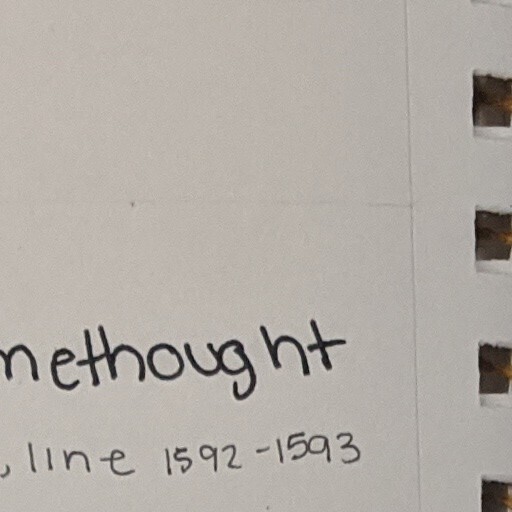 methought
, line 1592-1593